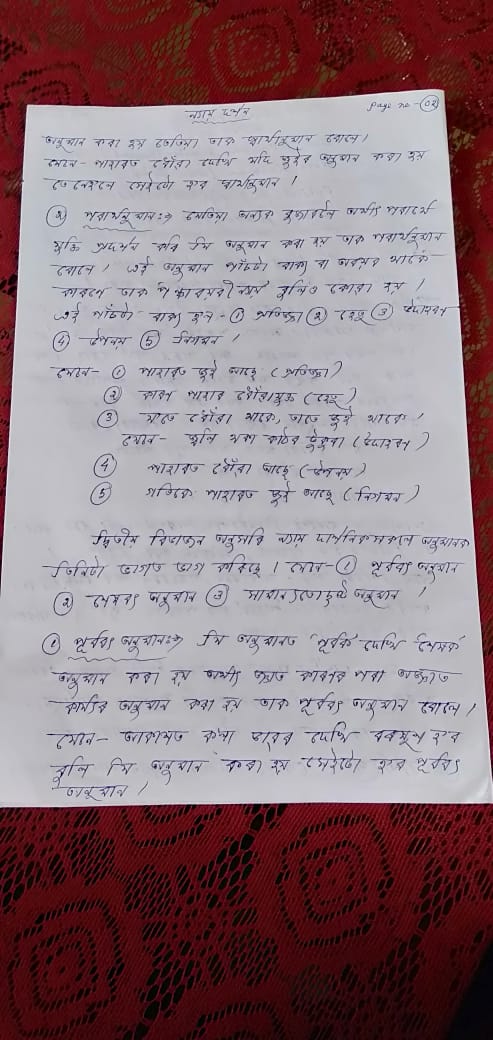 ন্যায় দৰ্শন
page no - 02
অনুমান কৰা হয় তেতিয়া তাক স্বাৰ্থানুমান বোলে।
যেনে- পাহাৰত ধোঁৱা দেখি যদি জুইৰ অনুমান কৰা হয়
তেনেহলে সেইটো হব স্বাৰ্থানুমান।
② পৰাৰ্থানুমান:⇒ যেতিয়া অন্যক বুজাবলৈ অৰ্থাৎ পৰাৰ্থে
যুক্তি প্ৰদৰ্শন কৰি যি অনুমান কৰা হয় তাক পৰাৰ্থানুমান
বোলে। এই অনুমান পাঁচটা বাক্য বা অৱয়ব থাকে
কাৰণে তাক পঞ্চাৱয়বী ন্যায় বুলিও কোৱা হয়।
এই পাঁচটা বাক্য হল- ① প্ৰতিজ্ঞা ② হেতু ③ উদাহৰণ
④ উপনয় ⑤ নিগমন।
যেনে- ① পাহাৰত জুই আছে (প্ৰতিজ্ঞা)
② কাৰণ পাহাৰ ধোঁৱাযুক্ত (হেতু)
③ য'তে ধোঁৱা থাকে, তাতে জুই থাকে।
যেনে- জ্বলি থকা কাঠৰ টুকুৰা (উদাহৰণ)
④ পাহাৰত ধোঁৱা আছে (উপনয়)
⑤ গতিকে পাহাৰত জুই আছে (নিগমন)
দ্বিতীয় বিভাজন অনুসৰি ন্যায় দাৰ্শনিকসকলে অনুমানক
তিনিটা ভাগত ভাগ কৰিছে। যেনে- ① পূৰ্ববৎ অনুমান
② শেষবৎ অনুমান ③ সামান্যতোদৃষ্ট অনুমান।
① পূৰ্ববৎ অনুমান:⇒ যি অনুমানত 'পূৰ্বক' দেখি শেষক
অনুমান কৰা হয় অৰ্থাৎ জ্ঞাত কাৰণৰ পৰা অজ্ঞাত
কাৰ্যৰ অনুমান কৰা হয় তাক পূৰ্ববৎ অনুমান বোলে।
যেনে- আকাশত কলা ডাৱৰ দেখি বৰষুণ হব
বুলি যি অনুমান কৰা হয় সেইটো হব পূৰ্ববৎ
অনুমান।